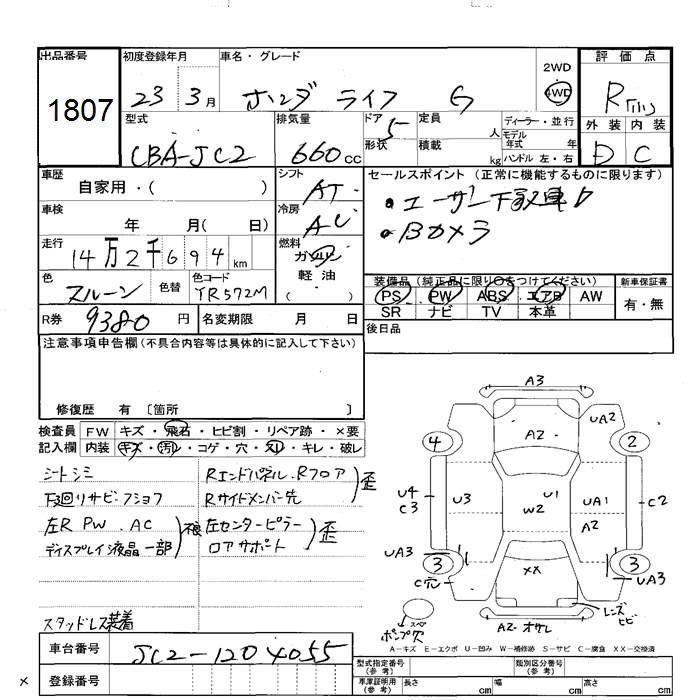 出品番号
1807
初度登録年月
23 3月
車名・グレード
ホンダ ライフ G
2WD
4WD
評価点
R
外装 内装
D C
型式
CBA-JC2
排気量
660cc
ドア 5
形状
定員 人
積載 kg
ディーラー・並行
モデル年式 年
ハンドル 左・右
車歴
自家用・( )
シフト
AT
セールスポイント (正常に機能するものに限ります)
・ユーザー下取車
・Bカメラ
車検
年 月( 日)
冷房
AC
走行
14万2千694km
燃料
ガソリン
軽油
( )
色
色替
色コード
YR572M
装備品(純正品に限り〇をつけてください)
PS PW ABS エアB AW
SR ナビ TV 本革
新車保証書
有・無
R券 9380円
名変期限 月 日
後日品
注意事項申告欄(不具合内容等は具体的に記入して下さい)
修復歴 有 〔箇所 〕
検査員 FW キズ・飛石・ヒビ割・リペア跡・×要
記入欄 内装 キズ・汚れ・コゲ・穴・スレ・キレ・破レ
シートシミ
下廻リサビ・フショク
左R PW . AC 不良
ディスプレイ液晶一部
スタッドレス装着
Rエンドパネル. Rフロア 歪
Rサイドメンバー先
左センターピラー 歪
ロアサポート
A3
UA2
A2
4
2
U4
C3
U3
U1
W2
UA1
A2
C2
UA3
3
3
UA3
C穴
XX
スペ
ポンプ穴
A2 オサレ
レンズヒビ
A-キズ E-エクボ U-凹み W-補修跡 S-サビ C-腐食 XX-交換済
車台番号
JC2-1204055
登録番号
×
型式指定番号
(参考)
類別区分番号
(参考)
車庫証明用
(参考)
長さ cm 幅 cm 高さ cm